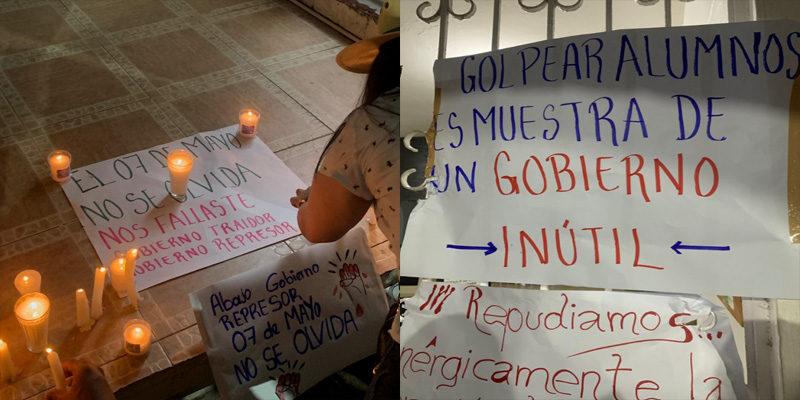 EL 07 DE MAYO
NO SE OLVIDA
NOS FALLASTE
GOBIERNO TRAIDOR
GOBIERNO REPRESOR
Abajo Gobierno
REPRESOR
07 de MAYO
NO SE OLVIDA
GOLPEAR ALUMNOS
ES MUESTRA DE
UN GOBIERNO
INÚTIL
!!! Repudiamos...
enérgicamente la